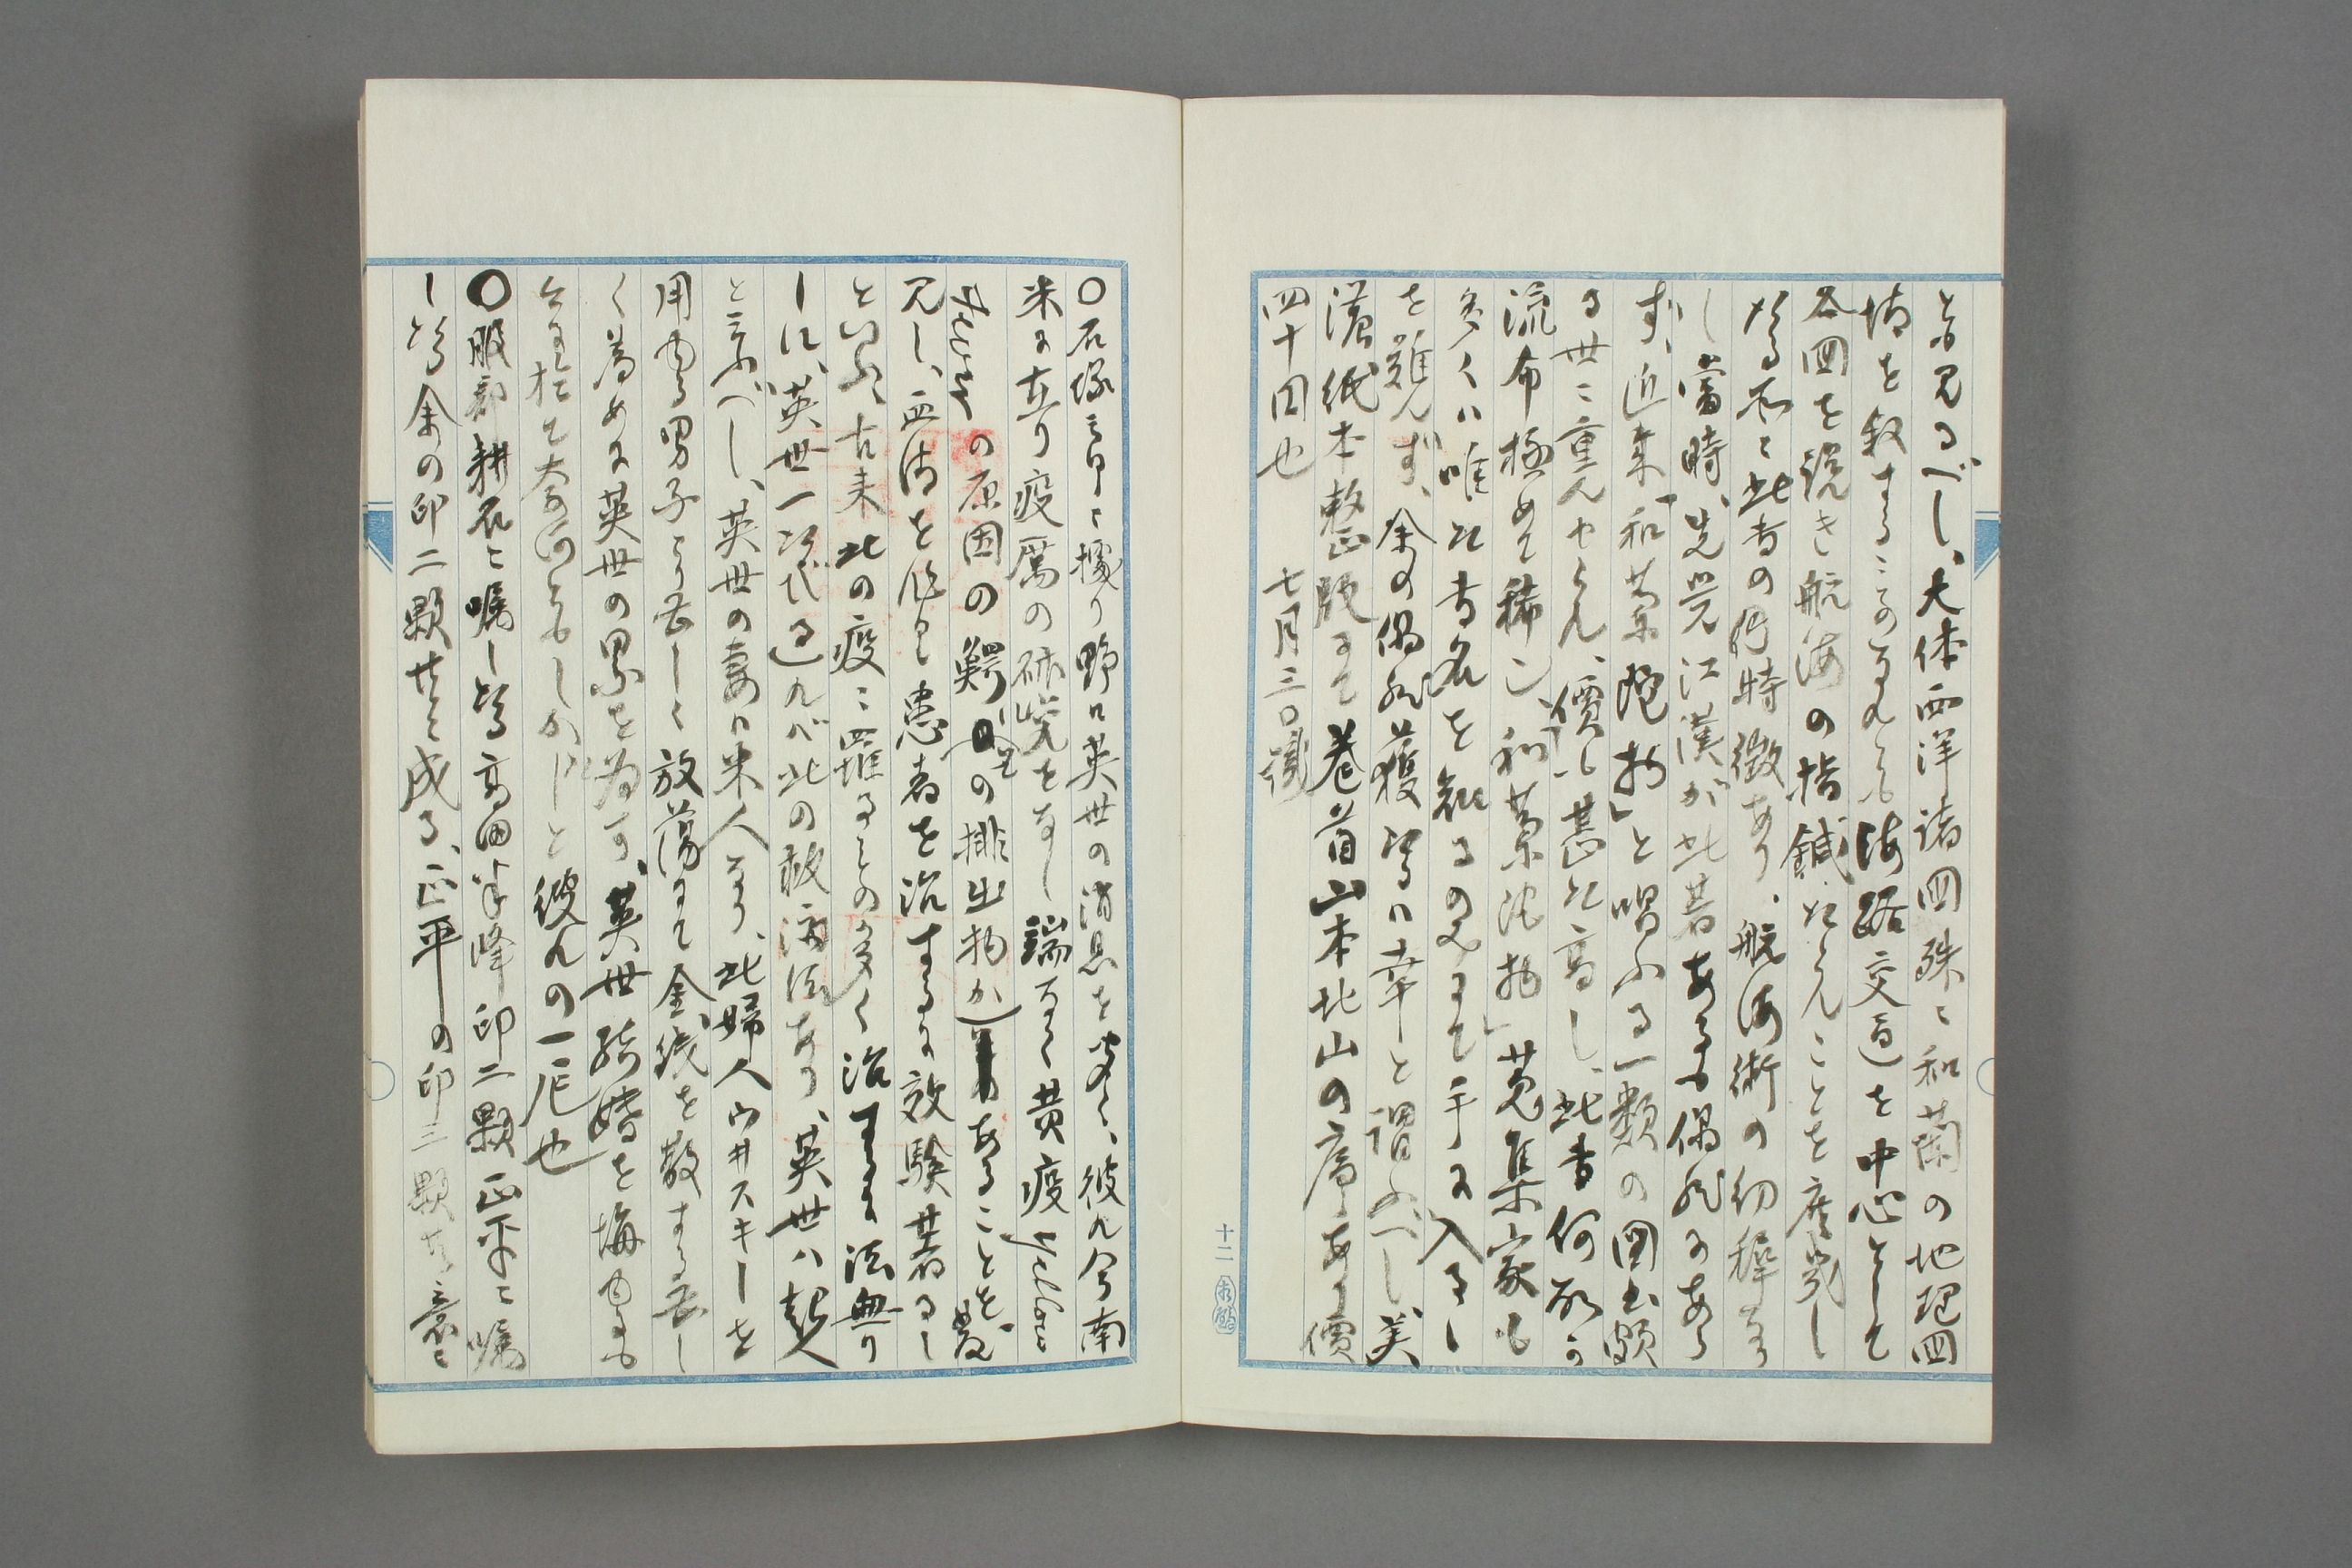 と見るべし、大体西洋諸国殊ニ和蘭の地理国
情を叙することなれども海路交通を中心として
各国を説き航海の指鍼たらんことを庶幾し
たる所ニ此書の特徴あり、航海術の幼穉なり
し當時、先覚江漢が此著あるも偶然にあら
ず、近来「和蘭陀物」と唱ふる一類の図書頗
る世ニ重んぜらる、價も甚た高し、此書何故か
流布極めて稀ニ、「和蘭陀物」蒐集家も
多くハ唯た書名を知るのみにて手に入るゝ
を難んず、余の偶然獲たるハ幸と謂ふべし、美
濃紙本整版にて巻首山本北山の序あり價
四十円也 七月三日識
十二
○石塚三郎ニ據り野口英世の消息を聞く、彼れ今南
米に在り疫厲の研究をなし端なく黄疫(Yellow
の原因の鰐の排出物かあることを發
見し、血清を作り患者を治するに效験著るし
といふ、古来此の疫ニ罹るもの多く治するに法無り
しに、英世一たび出でゝ此の救済法あり、英世ハ超人
と云ふべし、英世の妻ハ米人なり、此婦人ウ井スキーを
用ゆる男子より甚しく放蕩にて金銭を散ずる甚し
く為めに英世の累を為す、英世結婚を悔ゆるも
今に於て奈何ともしかたしと彼れの一厄也
○服部耕石ニ嘱したる高田半峰印二顆正平ニ嘱
したる余の印二顆共に成る、正平の印三顆